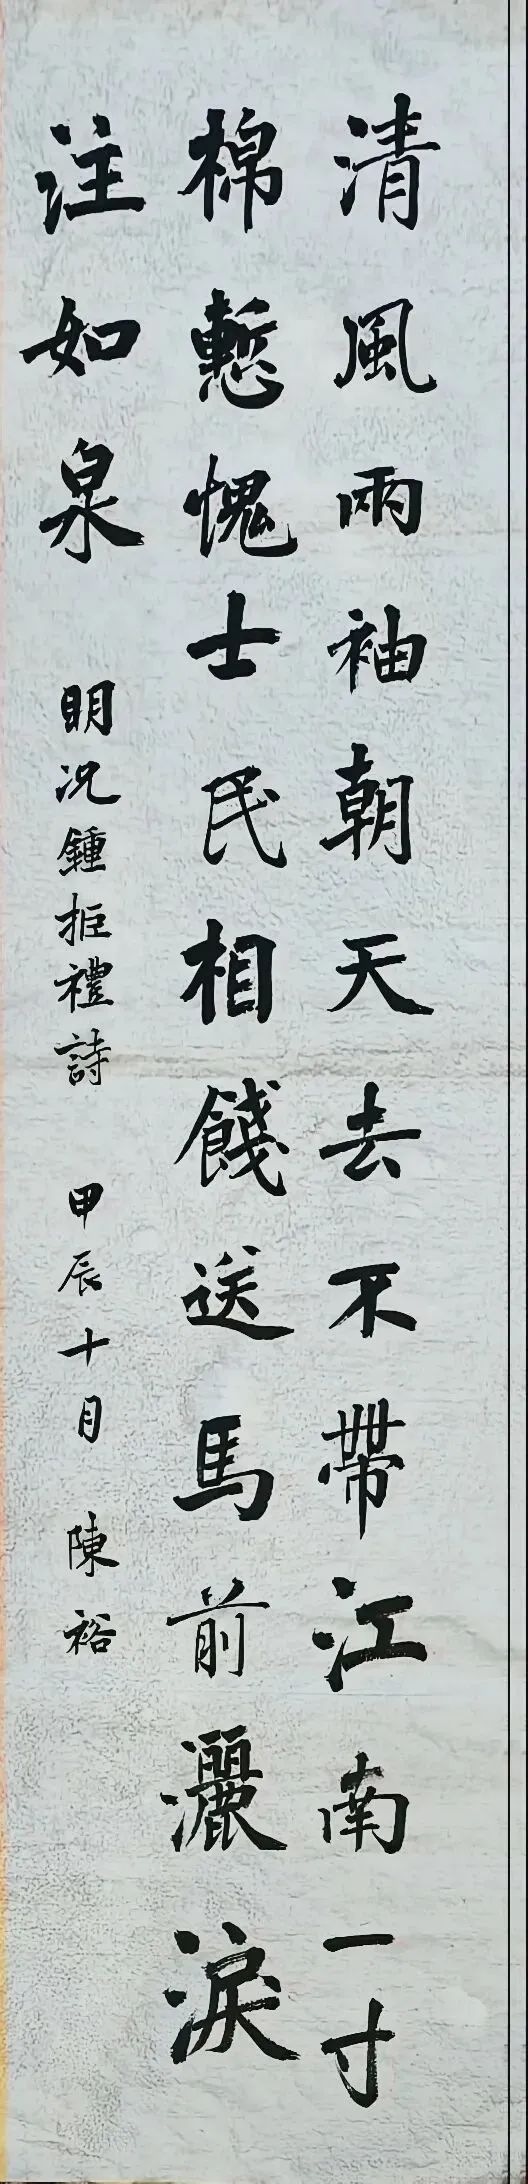 清風兩袖朝天去不帶江南一寸
棉慙愧士民相餞送馬前灑淚
注如泉 明况鍾拒禮詩 甲辰十月 陳裕